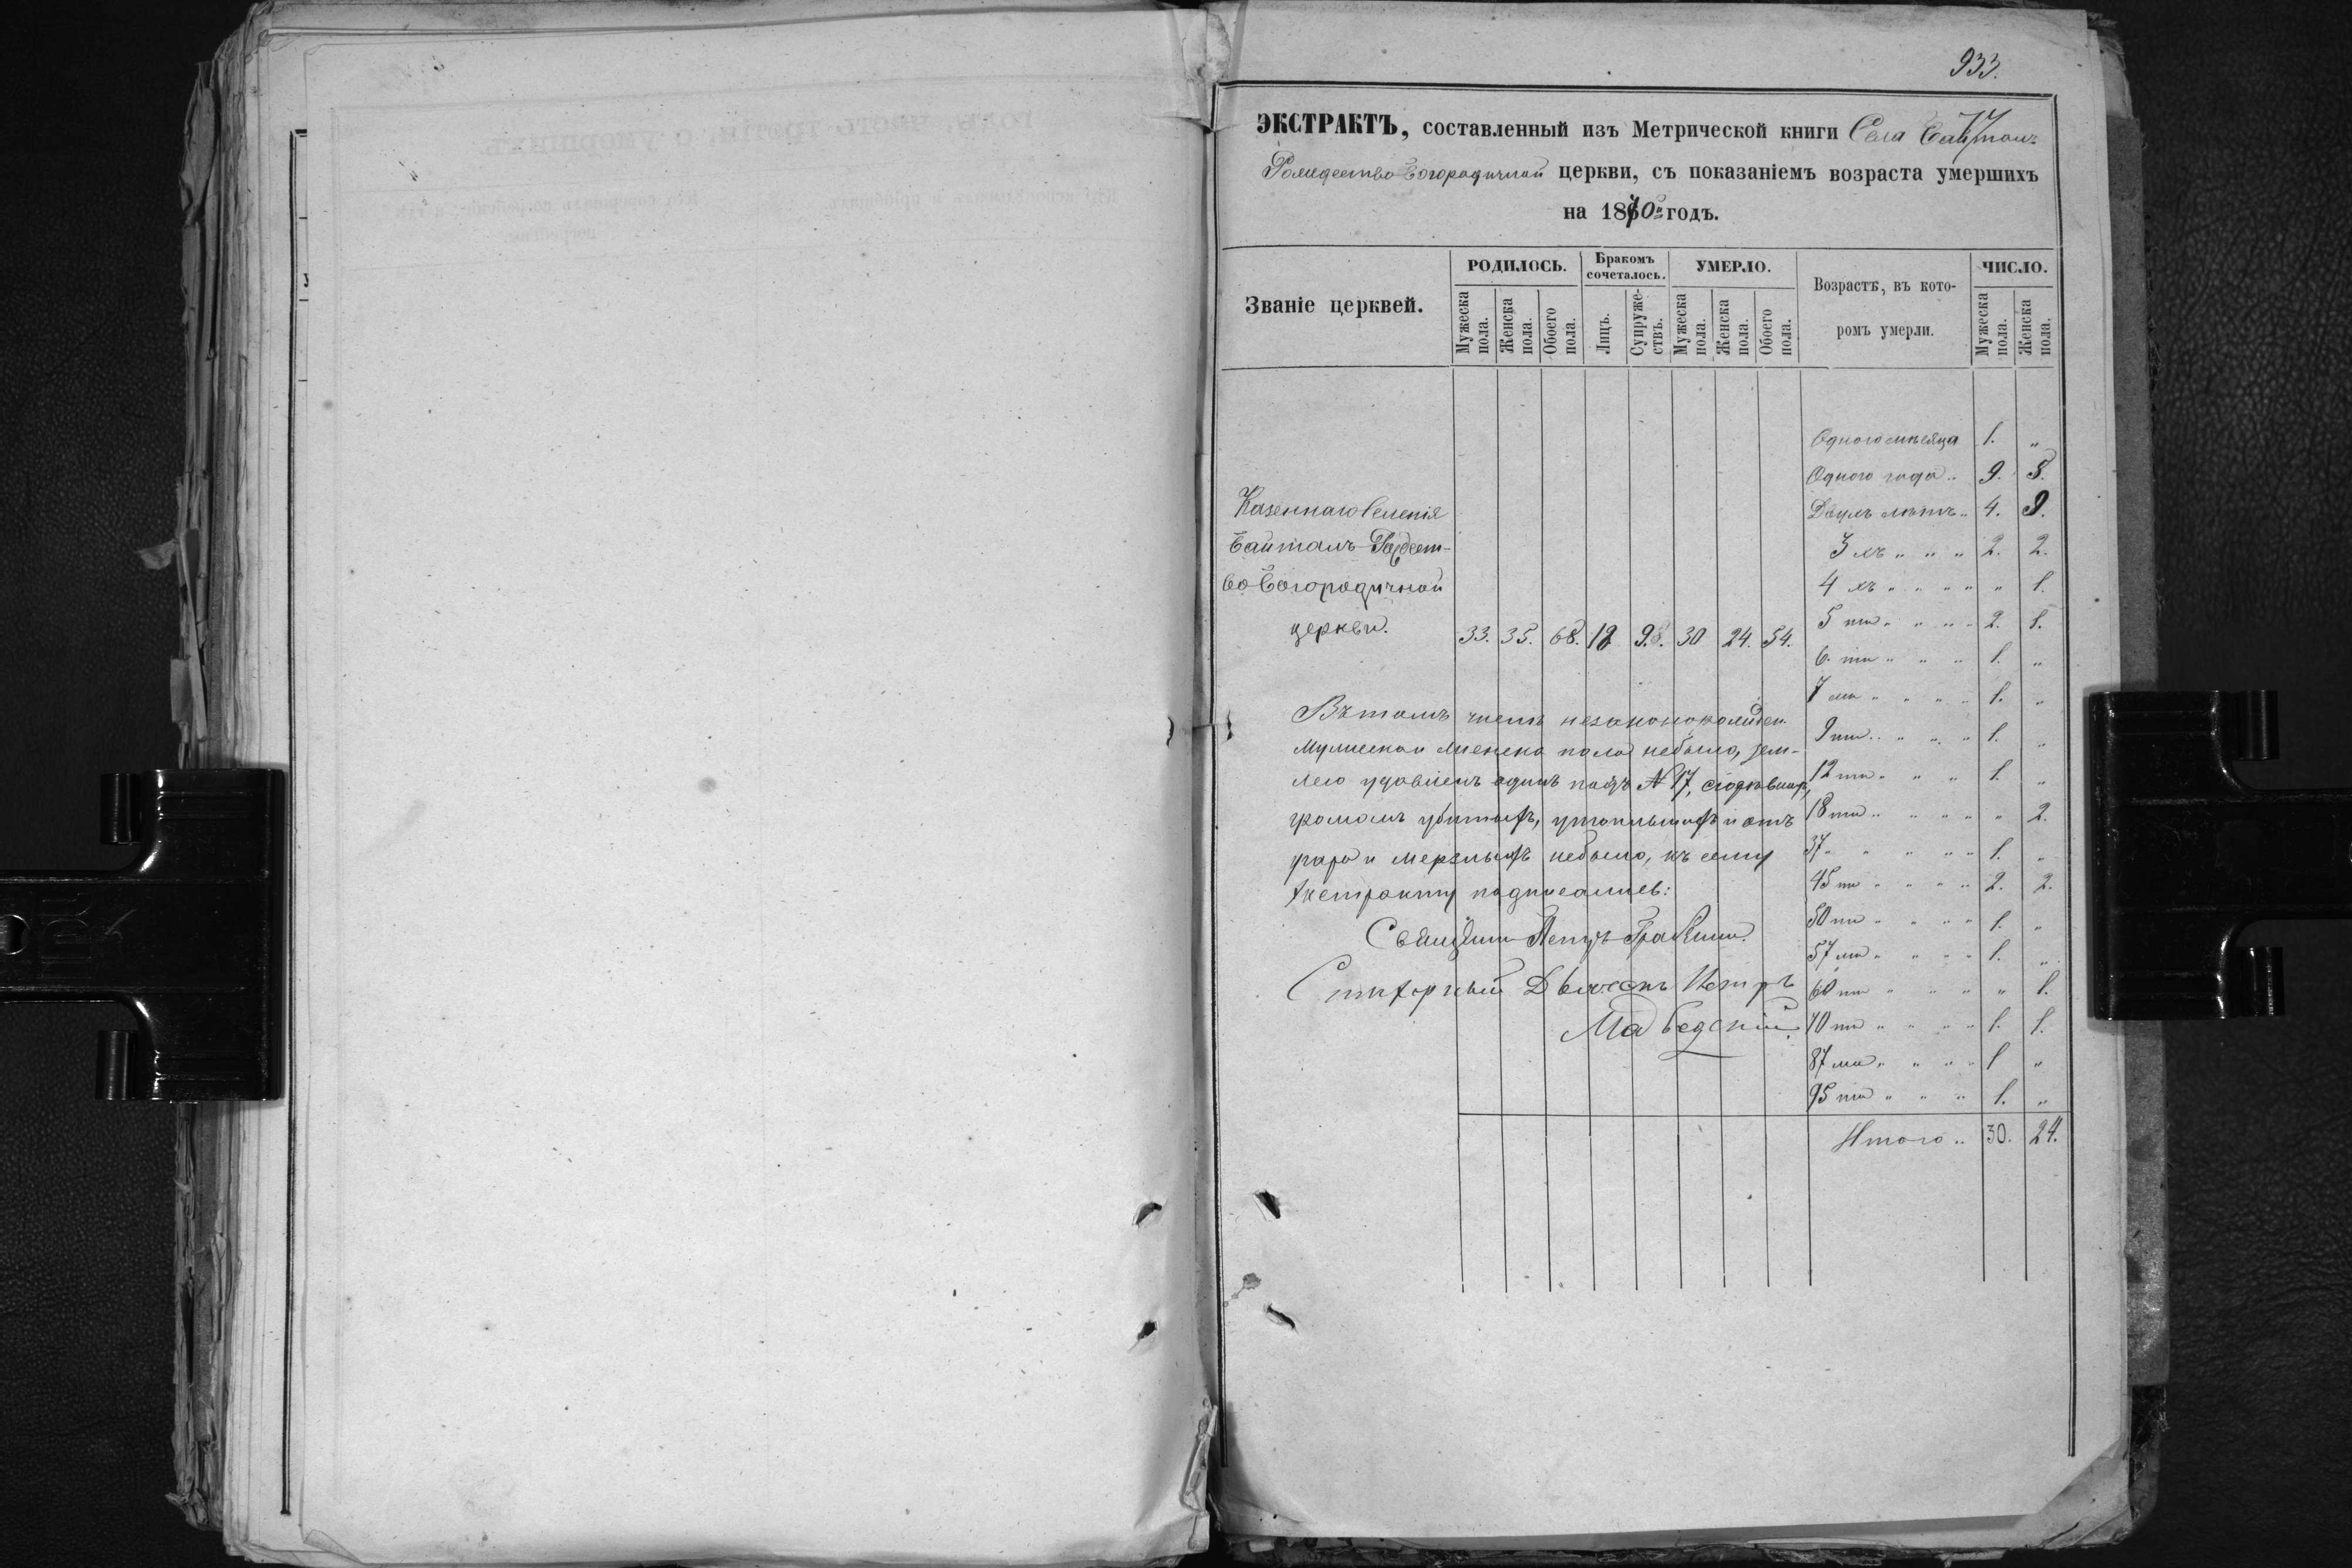 933.
ЭКСТРАКТЪ, составленный изъ Метрической книги Села Байталъ
Рождество-Богородичной церкви, съ показаніемъ возраста умершихъ
на 1870й годъ.
Званіе церквей.
РОДИЛОСЬ.
Бракомъ сочеталось.
УМЕРЛО.
Возрастъ, въ кото-
ромъ умерли.
ЧИСЛО.
Мужеска пола.
Женска пола.
Обоего пола.
Лицъ.
Супруже-ствъ.
Мужеска пола.
Женска пола.
Обоего пола.
Мужеска пола.
Женска пола.
Казеннаго Селенія
Байталъ Рождест-
во Богородичной
церкви. 33. 35. 68. 18 9. 30 24. 54.
Одного мѣсяца 1. "
Одного года " 9. 8.
Двухъ лѣтъ " 4. 9.
3 хъ " " " 2. 2.
4 хъ " " " " " 1.
5 ти " " " " 2. 1.
6 ти " " " 1. "
7 ми " " " " 1. "
9 ти " " " " 1. "
12 ти " " " 1. "
18 ти " " " " " 2.
37 " " " " " 1. "
45 ти " " " " 2. 2.
50 ти " " " " 1. "
57 ми " " " " 1. "
60 ти " " " " " 1.
70 ти " " " " 1. 1.
87 ми " " " " 1 "
95 ти " " " 1. "
Итого " 30. 24.
Въ томъ числѣ незаконнорожден.
мужеска и женска пола небыло, зем-
лею удавленъ одинъ подъ № 17,
громомъ убитыхъ, утопившихъ и отъ
угара и мерзлыхъ небыло, къ сему
Экстракту подписались:
Священникъ Петръ
Сверхштатный Дьячекъ Петръ